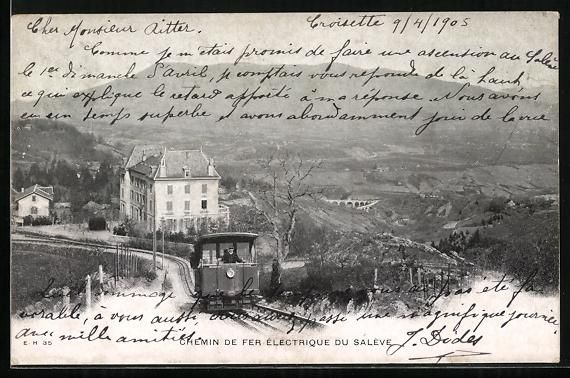 Cher Monsieur Ritter.
Croisette 9/4/1905
Comme je m'étais promis de faire une ascension au Salève
le 1er dimanche d'avril, je comptais vous répondre de là haut,
ce qui explique le retard apporté à ma réponse. Nous avons
eu un temps superbe et avons abondamment joui de la vue
dommage
pas été
favorable, à vous aussi
passé une magnifique journée,
avec mille amitiés,
J. Dodes
E. H 35
CHEMIN DE FER ÉLECTRIQUE DU SALÈVE